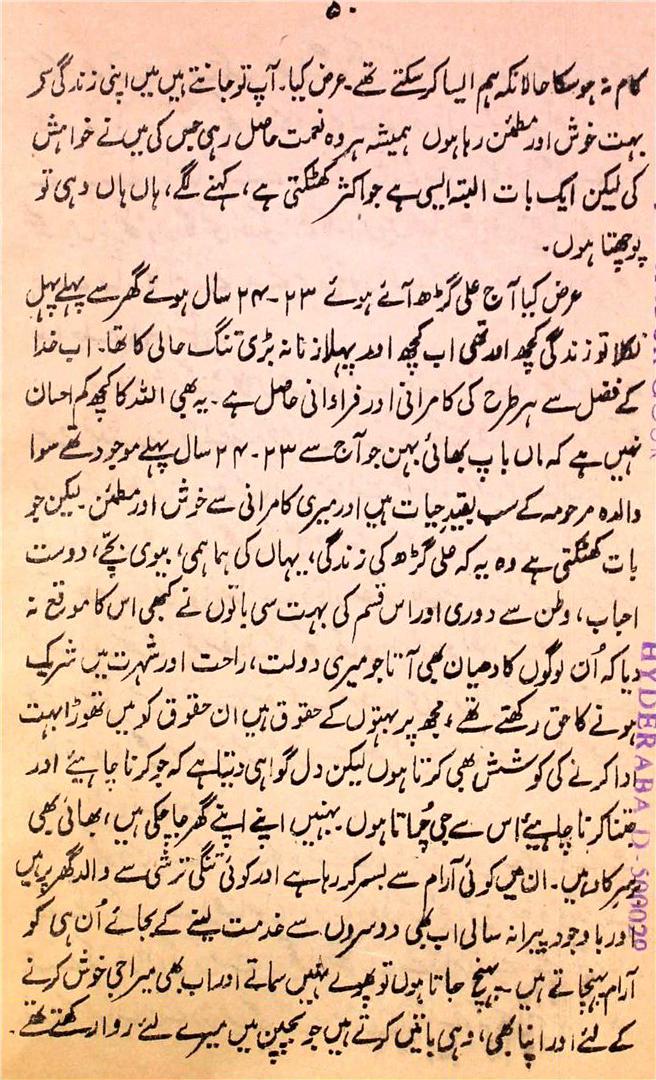 ۵۰
کام نہ ہوسکا حالانکہ ہم ایسا کرسکتے تھے۔ عرض کیا۔ آپ تو جانتے ہیں میں اپنی زندگی سے
بہت خوش اور مطمئن رہا ہوں ہمیشہ ہر وہ نعمت حاصل رہی جس کی میں نے خواہش
کی لیکن ایک بات البتہ ایسی ہے جو اکثر کھٹکتی ہے، کہنے لگے، ہاں ہاں وہی تو
پوچھتا ہوں۔
عرض کیا آج علی گڑھ آئے ہوئے ۲۳-۲۴ سال ہوئے گھر سے پہلے پہل
نکلا تو زندگی کچھ اور تھی اب کچھ اور پہلا زمانہ بڑی تنگ حالی کا تھا۔ اب خدا
کے فضل سے ہر طرح کی کامرانی اور فراوانی حاصل ہے۔ یہ بھی اللہ کا کچھ کم احسان
نہیں ہے کہ ماں باپ بھائی بہن جو آج سے ۲۳-۲۴ سال پہلے موجود تھے سوا
والدہ مرحومہ کے سب بقید حیات ہیں اور میری کامرانی سے خوش اور مطمئن۔ لیکن جو
بات کھٹکتی ہے وہ یہ کہ علی گڑھ کی زندگی، یہاں کی ہماہمی، بیوی بچّے، دوست
احباب، وطن سے دوری اور اس قسم کی بہت سی باتوں نے کبھی اس کا موقع نہ
دیا کہ اُن لوگوں کا دھیان بھی آتا جو میری دولت، راحت اور شہرت میں شریک
ہونے کا حق رکھتے تھے، مجھ پر بہتوں کے حقوق ہیں ان حقوق کو میں تھوڑا بہت
ادا کرنے کی کوشش بھی کرتا ہوں لیکن دل گواہی دیتا ہے کہ جو کرنا چاہیئے اور
جتنا کرنا چاہیئے اس سے جی چُراتا ہوں۔ بہنیں اپنے اپنے گھر جا چکی ہیں، بھائی بھی
برسرکار ہیں۔ ان میں کوئی آرام سے بسر کر رہا ہے اور کوئی تنگی ترشی سے والد گھر پر ہیں
اور باوجود پیرانہ سالی اب بھی دوسروں سے خدمت لینے کے بجائے اُن ہی کو
آرام پہنچاتے ہیں۔ پہنچ جاتا ہوں تو پھولے نہیں سماتے اور اب بھی میرا جی خوش کرنے
کے لئے اور اپنا بھی، وہی باتیں کرتے ہیں جو بچپن میں میرے لئے روا رکھتے تھے۔
HYDERABAD-500020